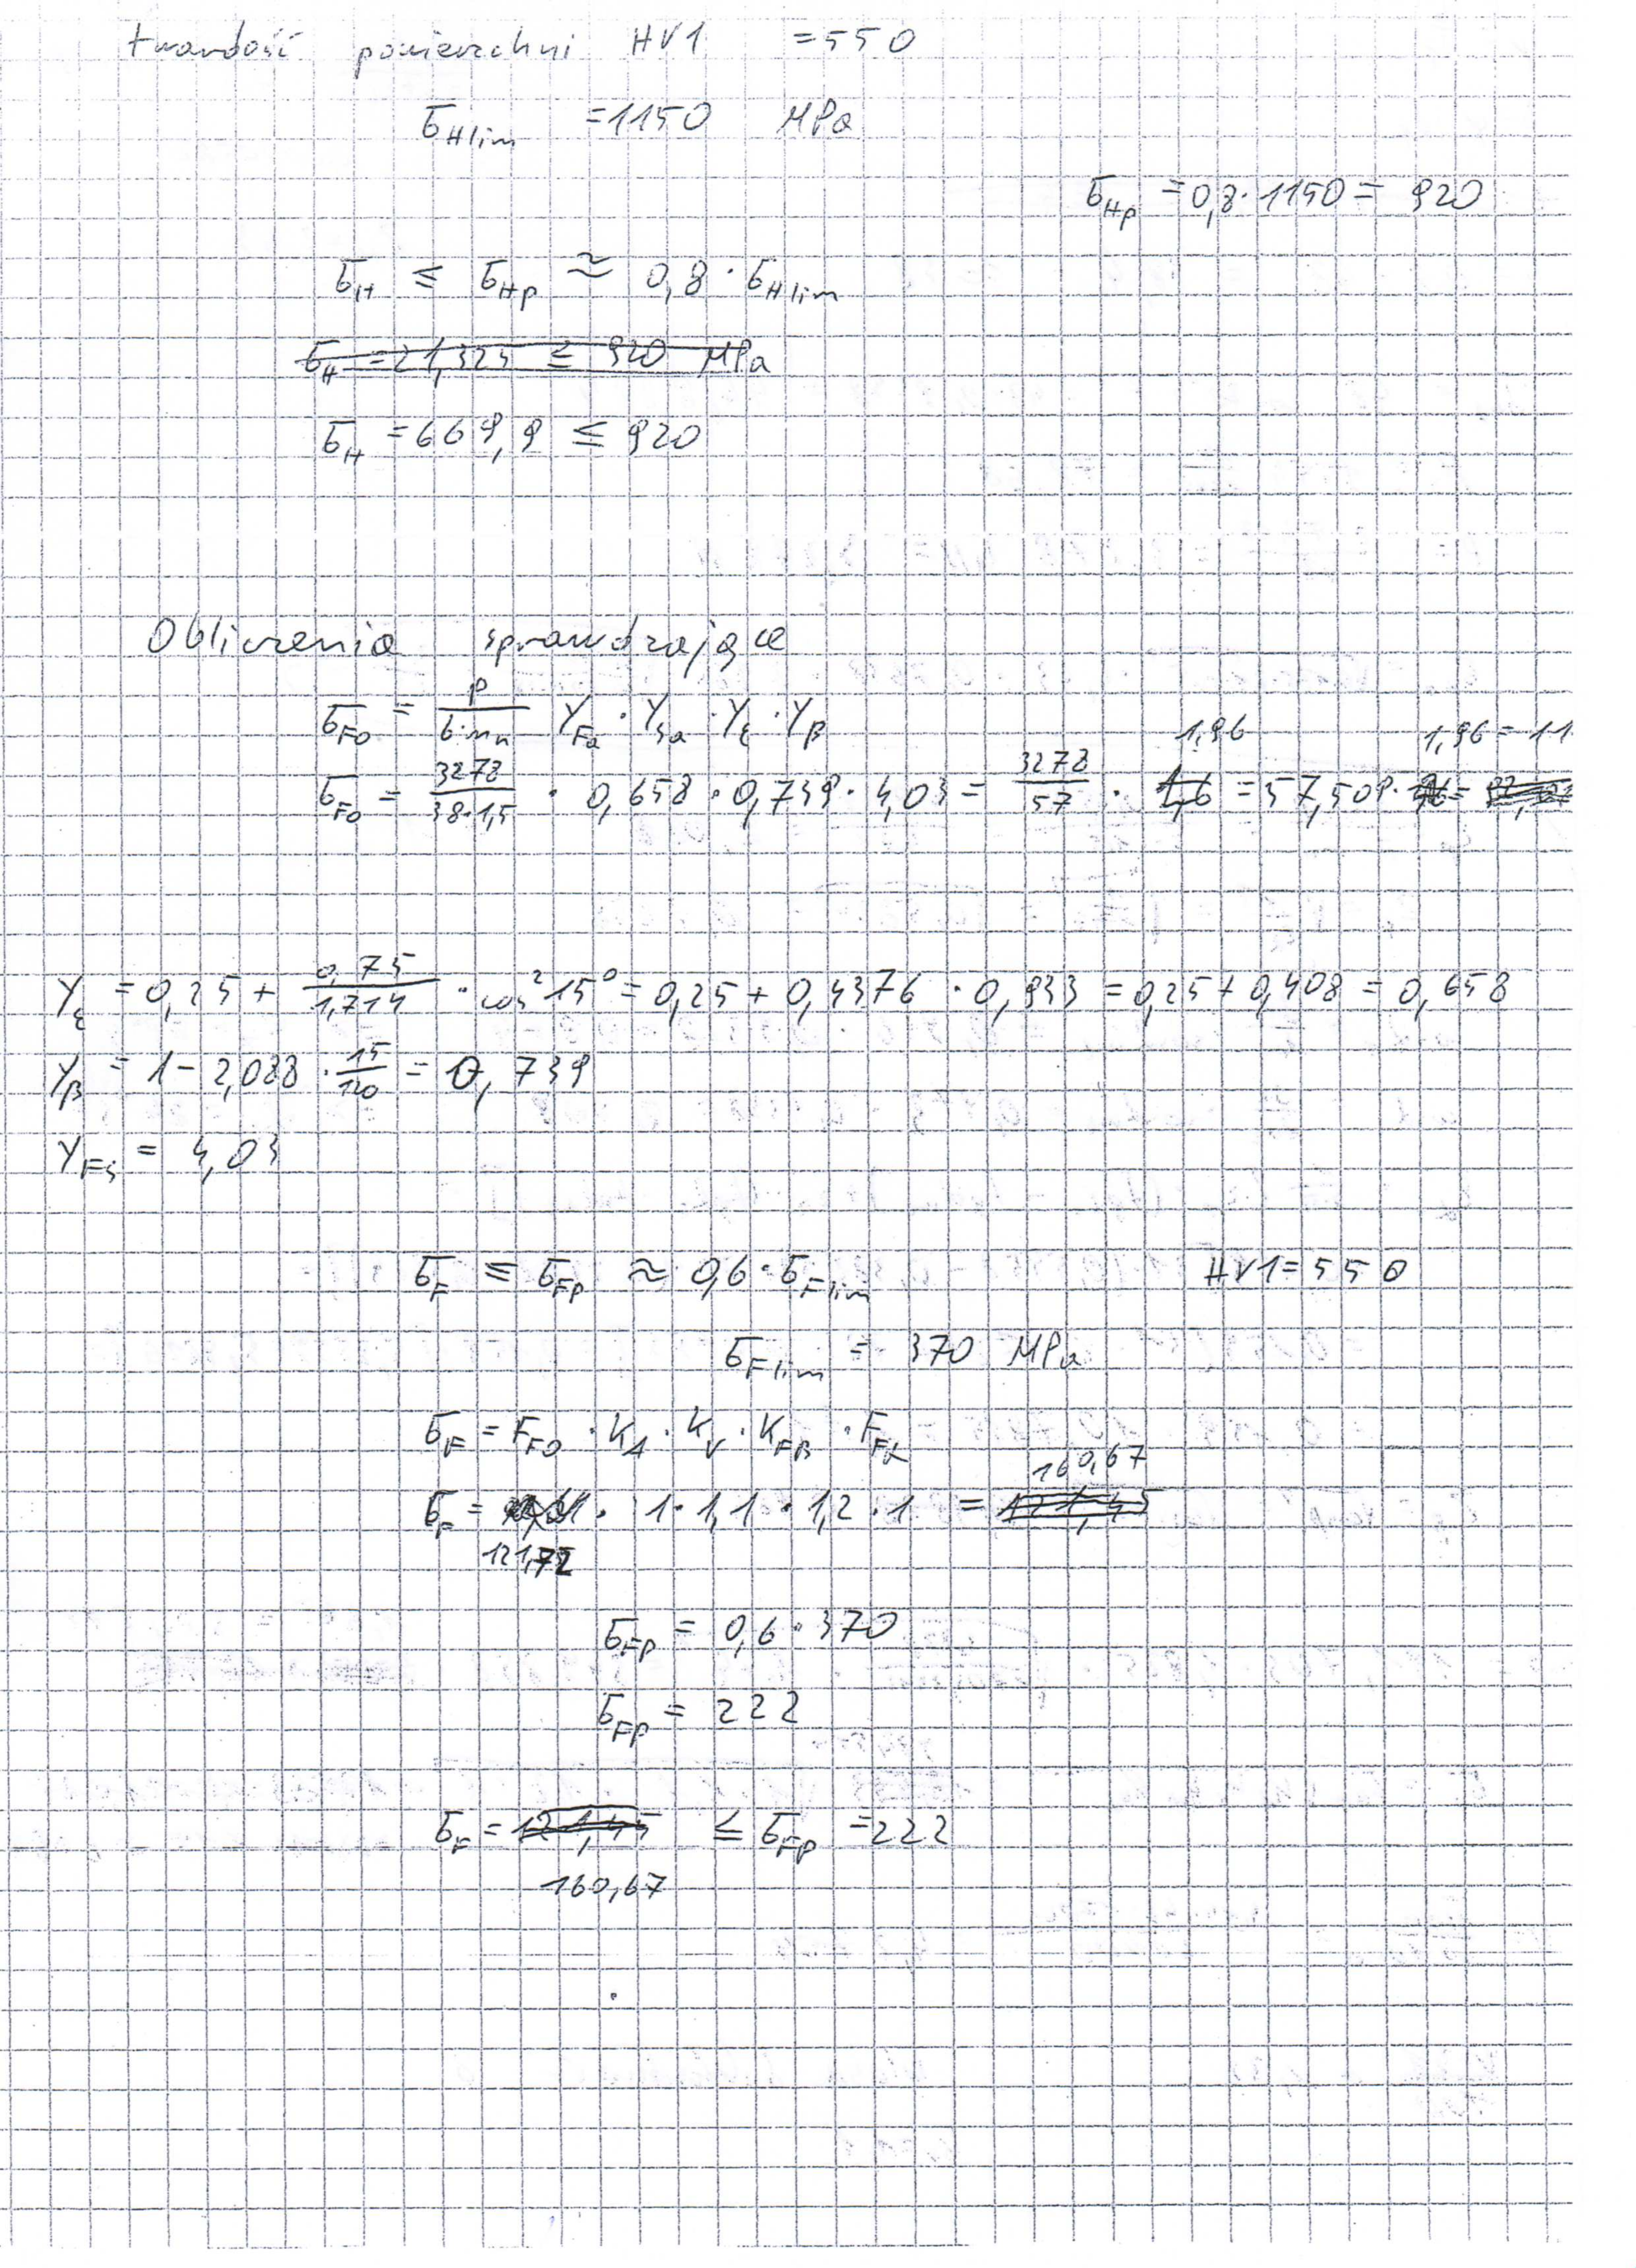 twardość powierzchni HV1 = 550
σHlim = 1150 MPa
σHp = 0,8 · 1150 = 920
σH ≤ σHp ≈ 0,8 · σHlim
σH = 21,325 ≤ 920 MPa
σH = 669,9 ≤ 920
Obliczenia sprawdzające
σFO = P / (b · mn) YFa · YSa · Yε · Yβ
σFO = 3278 / (38 · 1,5) · 0,658 · 0,739 · 4,03 = 3278 / 57 · 1,96 = 57,509 · 1,96 = 11
Yε = 0,25 + 0,75 / 1,714 · cos² 15° = 0,25 + 0,4376 · 0,933 = 0,25 + 0,408 = 0,658
Yβ = 1 - 2,088 · 15 / 120 = 0,739
YFS = 4,03
σF ≤ σFp ≈ 0,6 · σFlim HV1 = 550
σFlim = 370 MPa
σF = FFO · KA · KV · KFβ · FFα
160,67
σF = · 1 · 1,1 · 1,2 · 1 = 121,45
121,72
σFp = 0,6 · 370
σFp = 222
σF = 121,45 ≤ σFp = 222
160,67